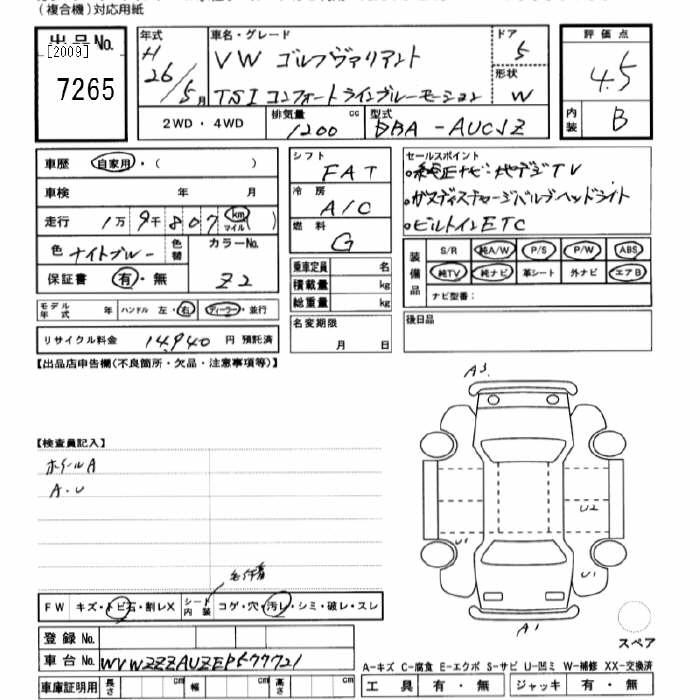 (複合機)対応用紙
出品No. [2009] 7265
年式 H26/5月
車名・グレード VW ゴルフヴァリアント
TSI コンフォートラインブルーモーション
ドア 5
形状 W
評価点 4.5
内装 B
2WD・4WD
排気量 1200 cc
型式 DBA-AUCJZ
車歴 自家用・( )
車検 年 月
走行 1万9千807 (km マイル)
色 ナイトブルー 色替
カラーNo. Z2
保証書 有・無
モデル年式 年 ハンドル 左・右 ディーラー・並行
リサイクル料金 14,940 円 預託済
シフト FAT
冷房 A/C
燃料 G
乗車定員 名
積載量 kg
総重量 kg
名変期限
月 日
セールスポイント
•純正ナビ・地デジTV
•ガスディスチャージバルブヘッドライト
•ビルトインETC
装備品
S/R 純A/W P/S P/W ABS
純TV 純ナビ 革シート 外ナビ エアB
ナビ型番:
後日品
【出品店申告欄(不良箇所・欠品・注意事項等)】
【検査員記入】
ホイールA
A・U
A3
U2
U1
U1
A1
スペア
FW キズ・トビ石・割レX
シート内装 コゲ・穴・汚レ・シミ・破レ・スレ
登録No.
車台No. WVWZZZAUZEP577721
車庫証明用 長さ cm 幅 cm 高さ cm
A-キズ C-腐食 E-エクボ S-サビ U-凹ミ W-補修 XX-交換済
工具 有・無 ジャッキ 有・無